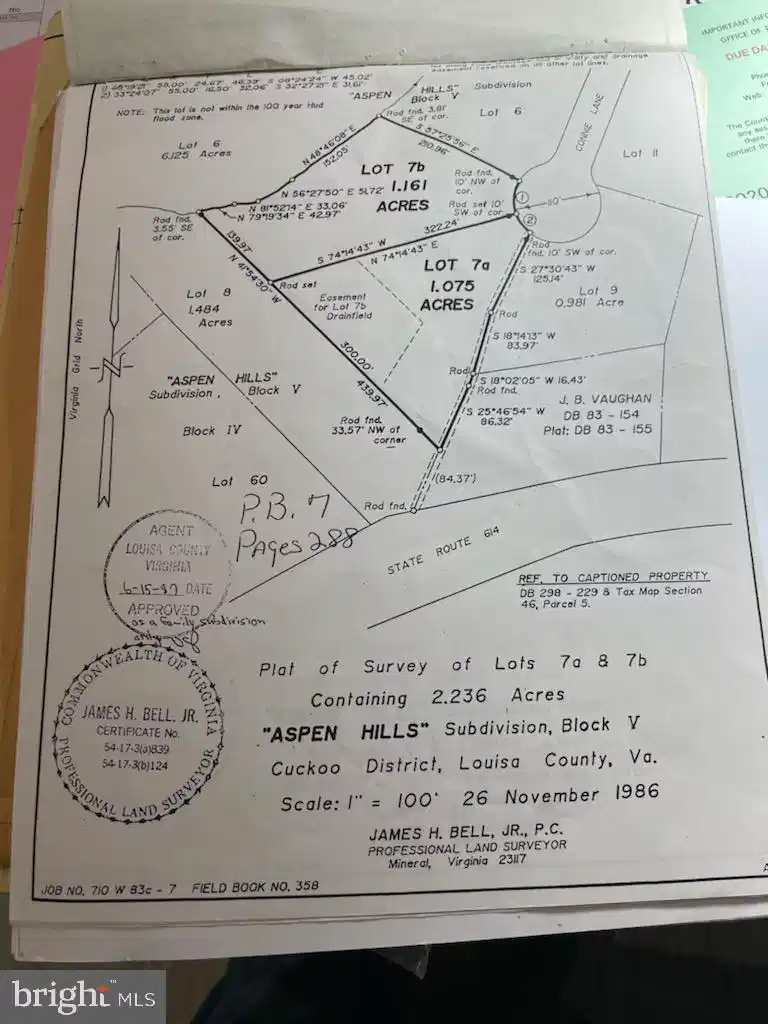 No
IMPORTANT INFO
OFFICE OF
DUE DA
Pho
Web
The Count
any as
there
contact th
easement reserved on all other lot lines.
1) 48°19'21" 55.00' 24.67' 46.39' S 08°24'24" W 45.02'
2) 33°24'07" 55.00' 16.50' 32.06' S 32°27'21" E 31.61'
NOTE: This lot is not within the 100 year Hud
flood zone.
"ASPEN HILLS" Subdivision
Block V
Lot 6
Rod fnd. 3.91'
SE of cor.
S 57°25'56" E
210.96'
CONNIE LANE
Lot 11
Lot 6
6.125 Acres
N 48°46'08" E
152.05'
LOT 7b
1.161
ACRES
Rod fnd.
10' NW of
cor.
N 56°27'50" E 51.72'
N 81°52'14" E 33.06'
N 79°19'34" E 42.97'
Rod set 10'
SW of cor.
1
110'
2
Rod fnd.
3.55' SE
of cor.
139.97'
N 41°54'30" W
322.24'
S 74°14'43" W
N 74°14'43" E
Rod
fnd. 10' SW of cor.
LOT 7a
1.075
ACRES
S 27°30'43" W
125.14'
Lot 9
0.981 Acre
Rod set
Lot 8
1.484
Acres
Easement
for Lot 7b
Drainfield
Rod
S 18°14'13" W
83.97'
Virginia Grid North
300.00'
439.97'
Rod
S 18°02'05" W 16.43'
Rod fnd.
"ASPEN HILLS"
Subdivision, Block V
S 25°46'54" W
86.32'
J. B. VAUGHAN
DB 83 - 154
Plat: DB 83 - 155
Block IV
Rod fnd.
33.57' NW of
corner
Lot 60
(84.37')
Rod fnd.
P.B. 7
Pages 288
STATE ROUTE 614
AGENT
LOUISA COUNTY
VIRGINIA
6-15-87 DATE
APPROVED
as a family subdivision
only
REF. TO CAPTIONED PROPERTY
DB 298 - 229 & Tax Map Section
46, Parcel 5.
COMMONWEALTH OF VIRGINIA
JAMES H. BELL, JR.
CERTIFICATE No.
54-17-3(a)839
54-17-3(b)124
PROFESSIONAL LAND SURVEYOR
Plat of Survey of Lots 7a & 7b
Containing 2.236 Acres
"ASPEN HILLS" Subdivision, Block V
Cuckoo District, Louisa County, Va.
Scale: 1" = 100' 26 November 1986
JAMES H. BELL, JR., P.C.
PROFESSIONAL LAND SURVEYOR
Mineral, Virginia 23117
JOB NO. 710 W 83c - 7 FIELD BOOK NO. 358
bright™ MLS